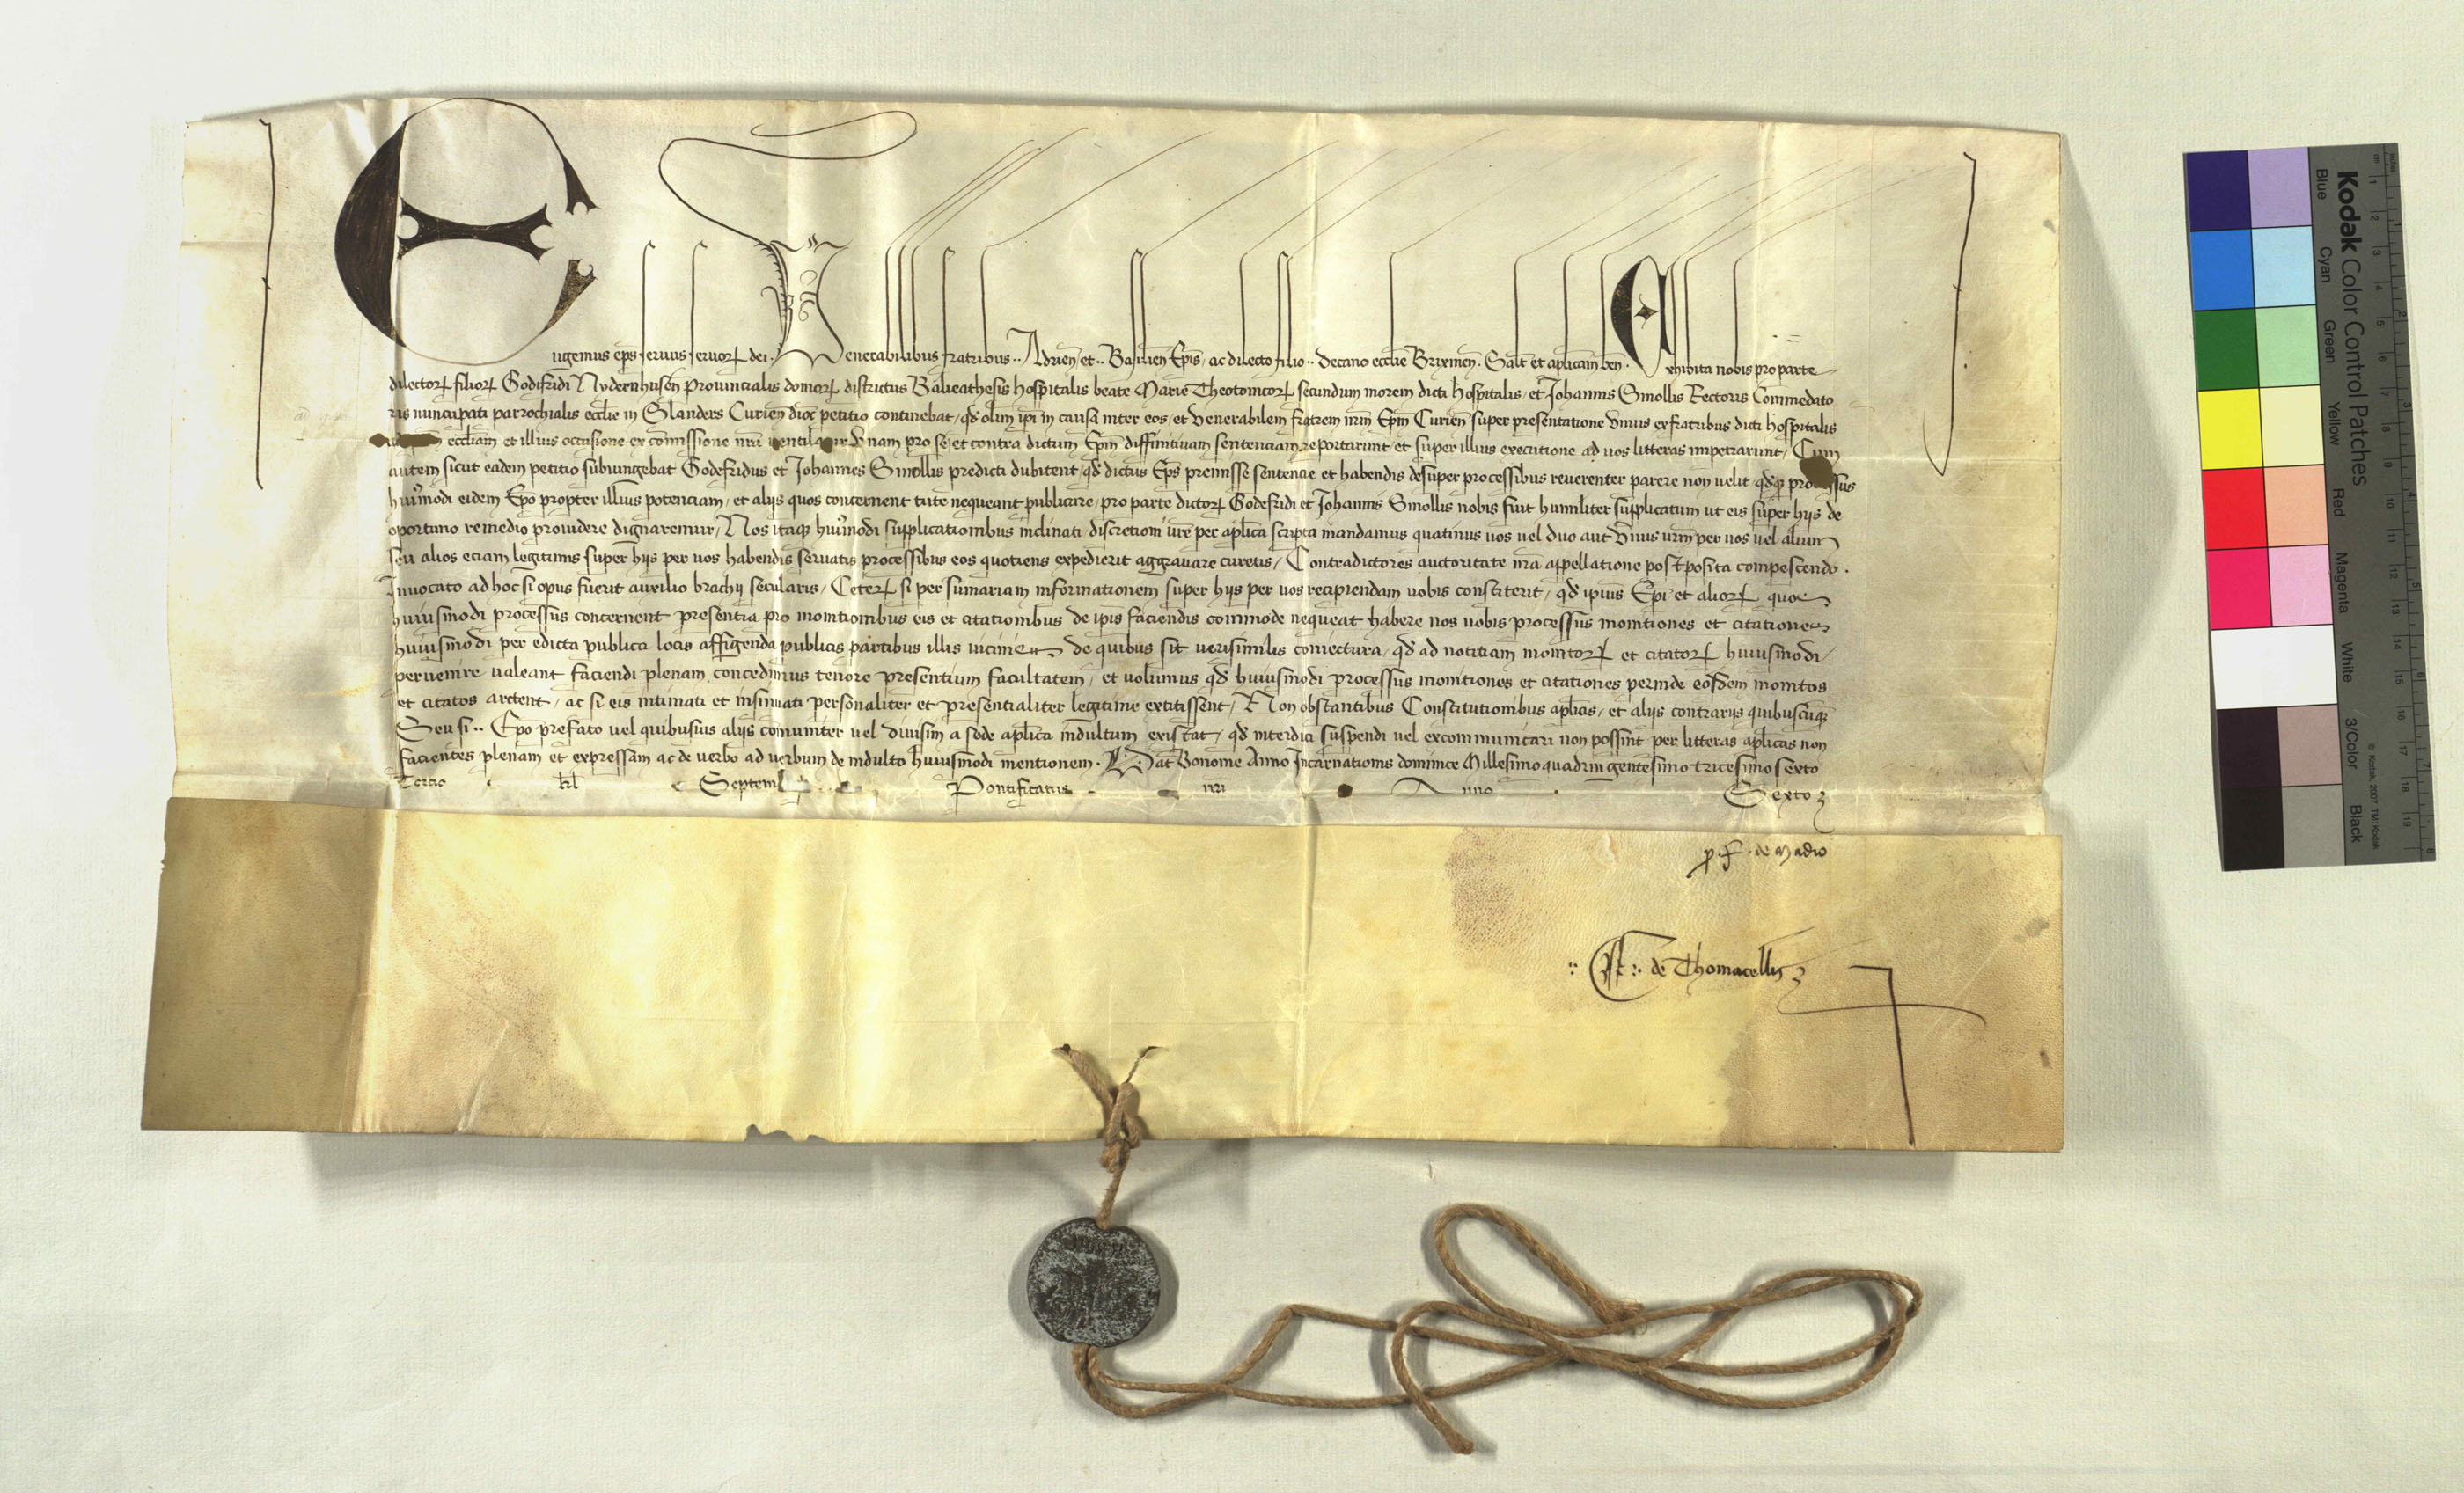 Eugenius ep̄s seruus seruoꝝ dei. Venerabilibus fratribus .. Adrien̄ et .. Basilien̄ Ep̄is, ac dilecto filio .. Decano eccl̄ie Brixinen̄. Sal̄t et ap̄licam ben̄. Exhibita nobis pro parte
dilectoꝝ filioꝝ Godifridi Nydernhusen Prouincialis domoꝝ districtus Balieathesis hospitalis beate Marie Theotonicoꝝ secundum morem dicti hospitalis, et Johannis Smollis Rectoris Commedato
ris nuncupati parrochialis eccl̄ie in Slanders Curien̄ dioc̄ petitio continebat, qd̄ olim ip̄i in causa inter eos, et Venerabilem fratrem nr̄m Ep̄m Curien̄ super presentatione Vnius ex fratribus dicti hospitalis
eccl̄iam et illius occasione ex com̄issione nr̄a Vnam pro se et contra dictum Ep̄m diffinitiuam sentenciam reportarunt, et super illius executione ad uos litteras impetrarunt, Cum
autem sicut eadem petitio subiungebat Godefridus et Johannes Smollis predicti dubitent, qd̄ dictus Ep̄s premisse sentencie et habendis desuper processibus reuerenter parere non uelit, qdꝫ processus
huiꝰmodi eidem Ep̄o propter illius potenciam, et alijs quos concernent tute nequeant publicare, pro parte dictoꝝ Godefridi et Johannis Smollis nobis fuit humiliter supplicatum ut eis super hijs de
oportuno remedio prouidere dignaremur, Nos itaqꝫ huiꝰmodi supplicationibus inclinati discretioni ur̄e per ap̄lica scripta mandamus quatinus uos uel duo aut Vnus ur̄m per uos uel alium
seu alios eciam legitimis super hijs per uos habendis seruatis processibus eos quotiens expedierit aggrauare curetis, Contradictores auctoritate nr̄a appellatione postposita compescendo.
Inuocato ad hoc si opus fuerit auxilio brachij secularis, Ceteꝝ si per sum̄ariam informationem super hijs per uos recipiendam uobis constiterit, qd̄ ipius Ep̄i et alioꝝ quos
huiusmodi processus concernent presentia pro monitionibus eis et citationibus de ip̄is faciendis commode nequeat habere nos uobis processus monitiones et citationes
huiusmodi per edicta publica locis affigenda publicis partibus illis uicinis de quibus sit uerisimilis coniectura, qd̄ ad notitiam monitoꝝ et citatoꝝ huiusmodi,
peruenire ualeant faciendi plenam concedimus tenore presentium facultatem, et uolumus qd̄ huiusmodi processus monitiones et citationes perinde eosdem monitos
et citatos artent, ac si eis intimati et insinuati personaliter et presentialiter legitime extitissent, Non obstantibus Constitutionibus ap̄licis, et alijs contrarijs quibuscunqꝫ
Seu si .. Ep̄o prefato uel quibusuis alijs com̄uniter uel diuisim a sede ap̄lica indultum existat, qd̄ interdici suspendi uel excommunicari non possint per litteras ap̄licas non
facientes plenam et expressam ac de uerbo ad uerbum de indulto huiusmodi mentionem. Dat̄ Bononie Anno Incarnationis dominice Millesimoquadringentesimotricesimosexto
Tercio kl̄ Septemb Pontificatus nr̄i Anno Sexto
ꝓ. F. de Madio
A. de Thomacellis
Kodak Color Control Patches
Blue Cyan Green Yellow Red Magenta White 3/Color Black
© Kodak, 2007 TM: Kodak